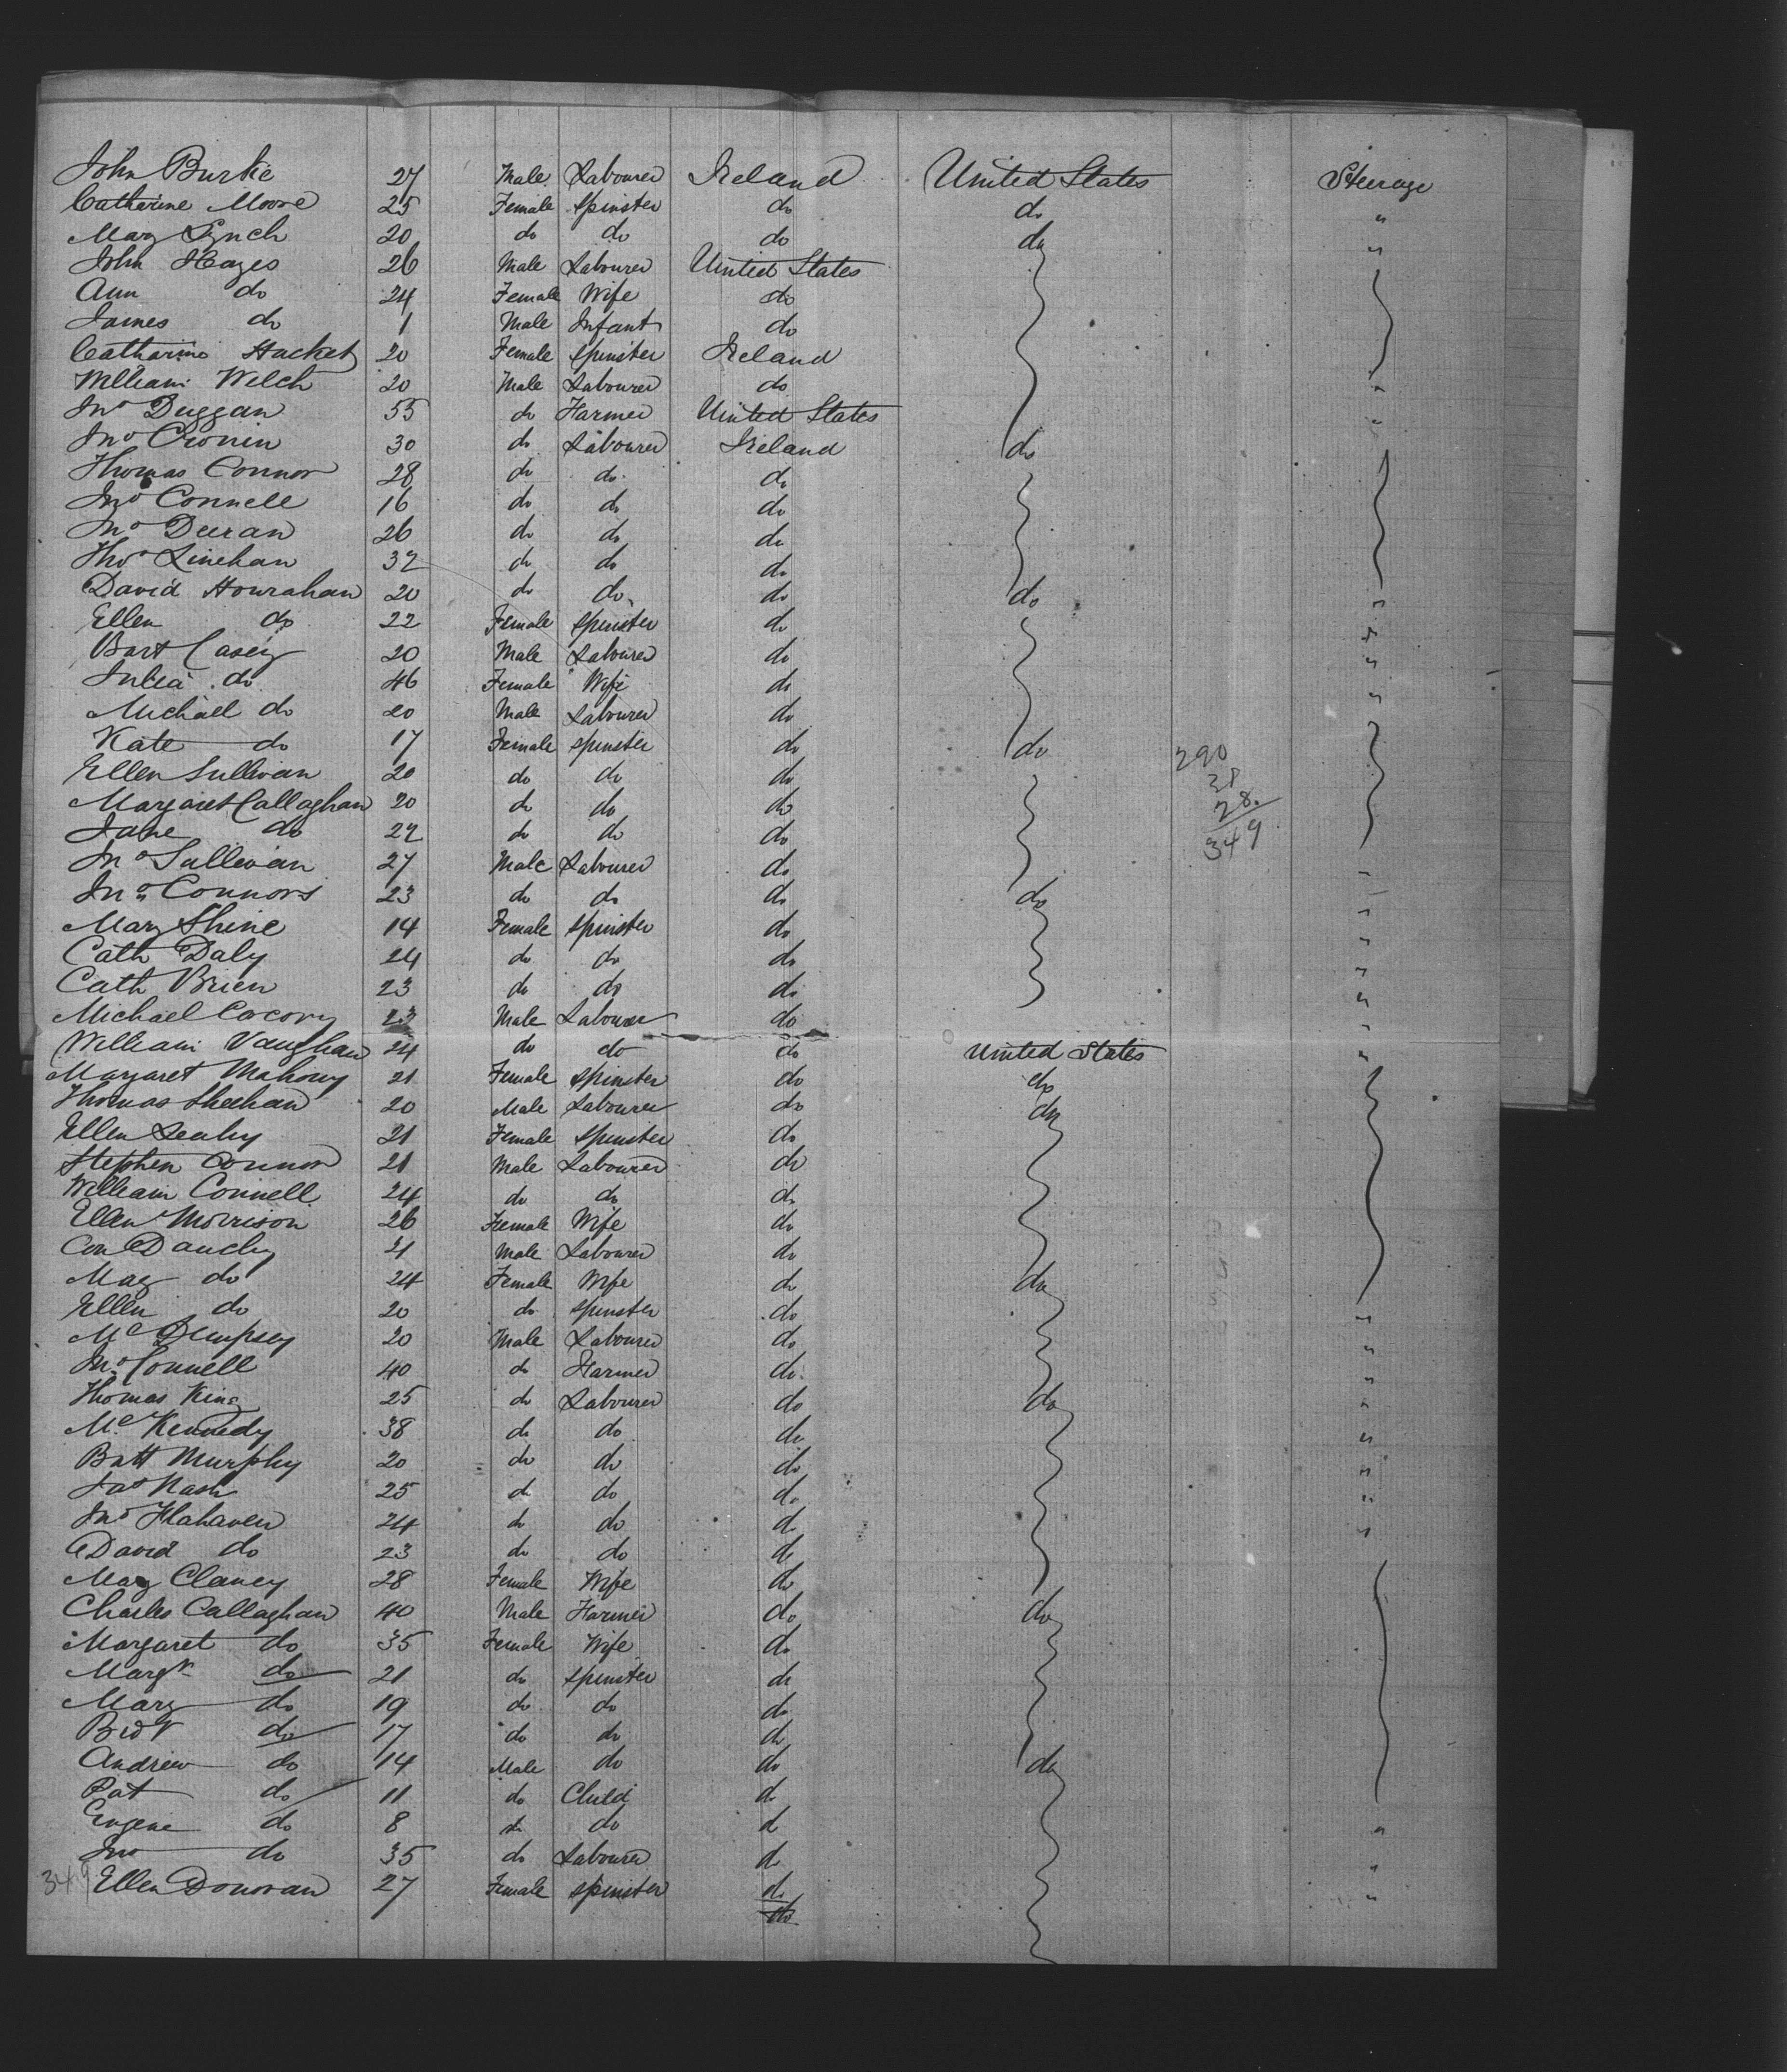 John Burke 27 Male Labourer Ireland United States Steerage
Catherine Moore 25 Female Spinster do do "
Mary Lynch 20 do do do do "
John Hayes 26 Male Labourer United States
Ann do 24 Female Wife do
James do 1 Male Infant do
Catharine Hacket 20 Female Spinster Ireland
William Welch 20 Male Labourer do "
Jno Duggan 55 do Farmer United States "
Jno Cronin 30 do Labourer Ireland do
Thomas Connor 28 do do do
Jno Connell 16 do do do
Jno 26 do do do
Thos Linehan 32 do do do
David Hourahan 20 do do do do "
Ellen do 22 Female Spinster do "
Bart Casey 20 Male Labourer do "
Julia do 46 Female Wife do "
Michael do 20 Male Labourer do
Kate do 17 Female Spinster do do 290
Ellen Sullivan 20 do do do 31
Margaret Callaghan 20 do do do 28
Jane do 22 do do do 349
Jno Sullivan 27 Male Labourer do "
Jno Connors 23 do do do do
Mary Shine 14 Female Spinster do "
Cath Daly 24 do do do "
Cath Brien 23 do do do "
Michael 23 Male Labourer do "
William Vaughan 24 do do do United States "
Margaret Mahony 21 Female Spinster do do
Thomas Sheehan 20 Male Labourer do do
Ellen Leahy 21 Female Spinster do
Stephen Connor 21 Male Labourer do
William Connell 24 do do do
Ellen Morrison 26 Female Wife do
Con 21 Male Labourer do
Mag do 24 Female Wife do do
Ellen do 20 do Spinster do "
Mc Dempsey 20 Male Labourer do "
Jno Connell 40 do Farmer do "
Thomas King 25 do Labourer do do "
Mc Kennedy 38 do do do "
Batt Murphy 20 do do do "
Jas Nash 25 do do do "
Jno Flahaven 24 do do do "
David do 23 do do do
Mary Clancy 28 Female Wife do
Charles Callaghan 40 Male Farmer do do
Margaret do 35 Female Wife do
Margt do 21 do Spinster do
Mary do 19 do do do
Bidt do 17 do do do
Andrew do 14 Male do do do
Pat do 11 do Child do
Eugene do 8 do do do "
Jno do 35 do Labourer do "
349 Ellen Donovan 27 Female Spinster do "
do